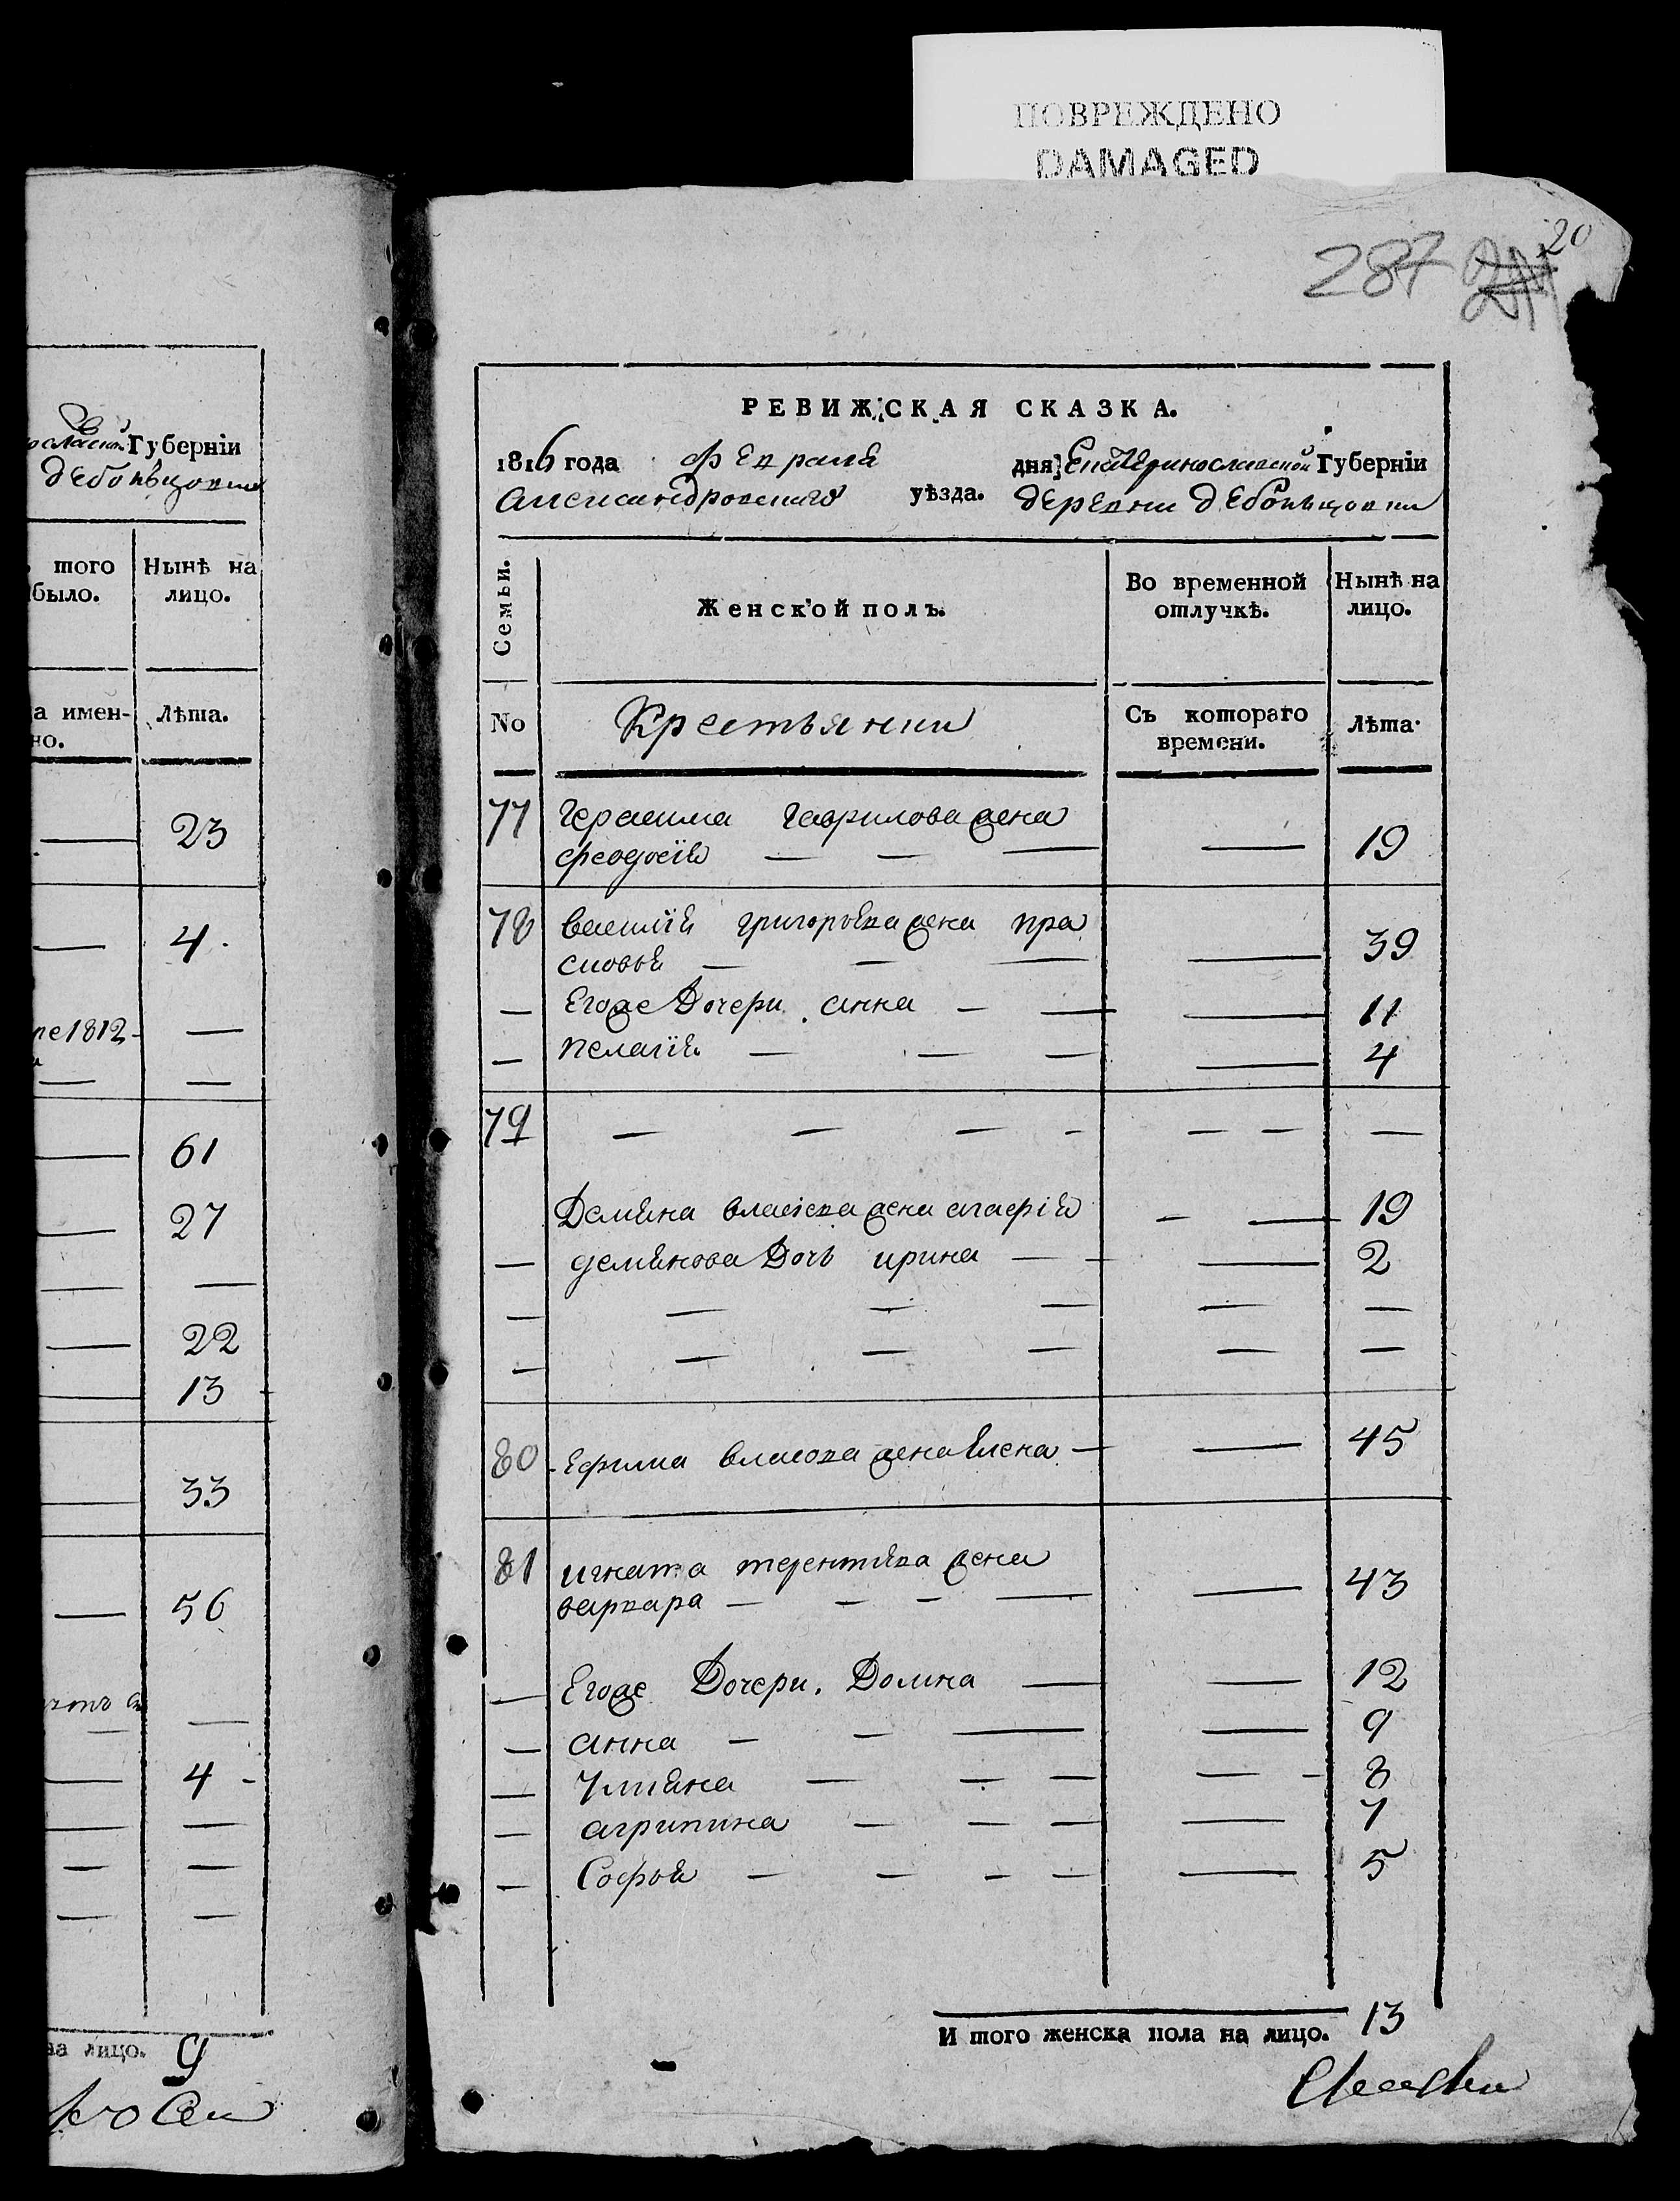 ПОВРЕЖДЕНО
DAMAGED
287
20
Губерніи
дебоньцовки
того
было.
Нынѣ на
лицо.
а имен-
но.
Лѣта.
23
4
1812
61
27
22
13
33
56
4
на лицо. 9
РЕВИЖСКАЯ СКАЗКА.
1816 года февраля дня Екатеринославской Губерніи
александровскаго уѣзда. деревни дебоньцовки
Семьи.
Женской полъ.
Во временной
отлучкѣ.
Нынѣ на
лицо.
No
Крестьянки
Съ котораго
времени.
Лѣта.
77 герасима гаврилова жена
феодосія — — — — 19
78 василія григорьева жена пра
сковья — — — — 39
— Егоже Дочери анна — — — 11
— пелагія — — — — 4
79 — — — — — — —
Демяна власова жена агафія — — 19
— демянова Дочь ирина — — — 2
— — — — — —
— — — — — —
80 Ефима власова жена Елена — — 45
81 игната терентьева жена
варвара — — — — — 43
— Егоже Дочери. Домна — — 12
— анна — — — — 9
— Улияна — — — — — 8
— агрипина — — — — 7
— Софья — — — — — 5
И того женска пола на лицо. 13